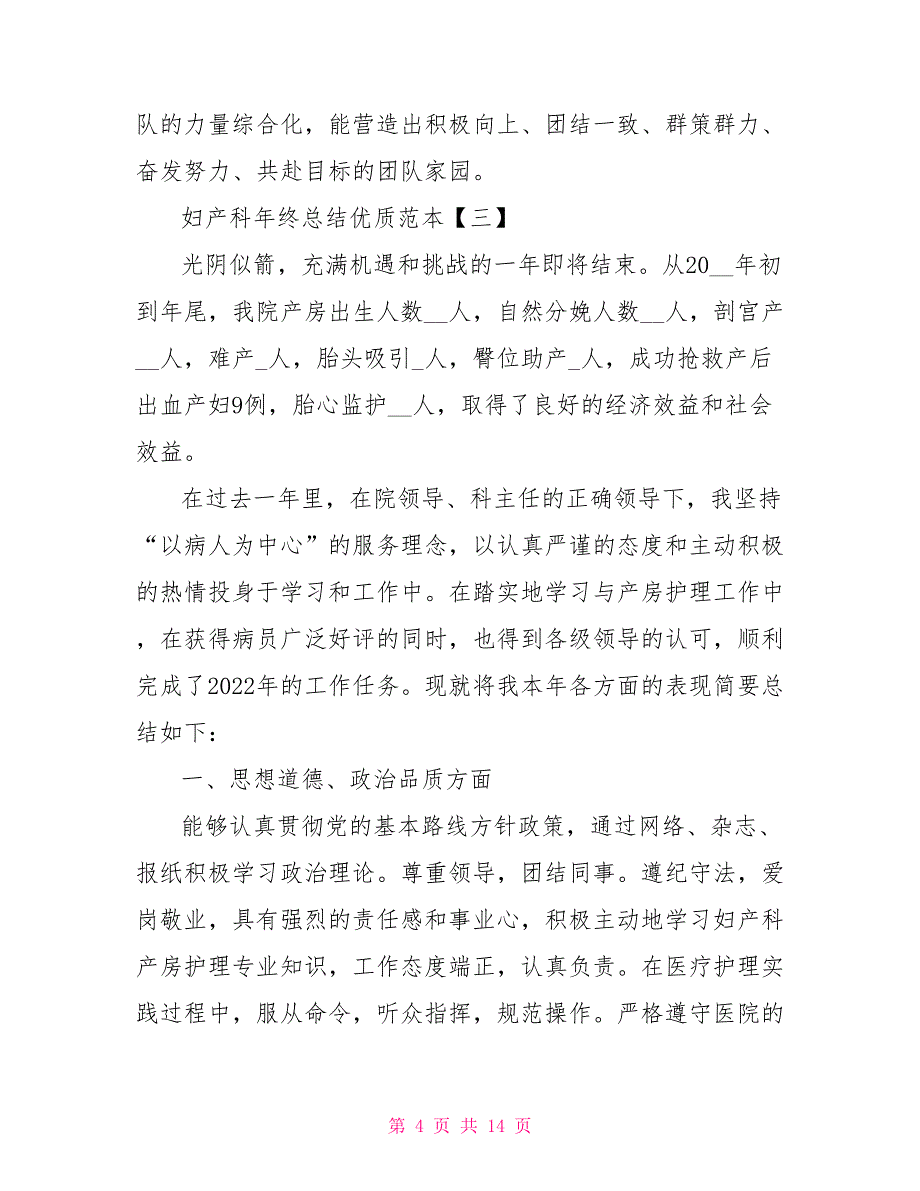 队的力量综合化，能营造出积极向上、团结一致、群策群力、
奋发努力、共赴目标的团队家园。
妇产科年终总结优质范本【三】
光阴似箭，充满机遇和挑战的一年即将结束。从20__年初
到年尾，我院产房出生人数__人，自然分娩人数__人，剖宫产
__人，难产_人，胎头吸引_人，臀位助产_人，成功抢救产后
出血产妇9例，胎心监护__人，取得了良好的经济效益和社会
效益。
在过去一年里，在院领导、科主任的正确领导下，我坚持
“以病人为中心”的服务理念，以认真严谨的态度和主动积极
的热情投身于学习和工作中。在踏实地学习与产房护理工作中
，在获得病员广泛好评的同时，也得到各级领导的认可，顺利
完成了2022年的工作任务。现就将我本年各方面的表现简要总
结如下：
一、思想道德、政治品质方面
能够认真贯彻党的基本路线方针政策，通过网络、杂志、
报纸积极学习政治理论。尊重领导，团结同事。遵纪守法，爱
岗敬业，具有强烈的责任感和事业心，积极主动地学习妇产科
产房护理专业知识，工作态度端正，认真负责。在医疗护理实
践过程中，服从命令，听众指挥，规范操作。严格遵守医院的
第 4 页 共 14 页